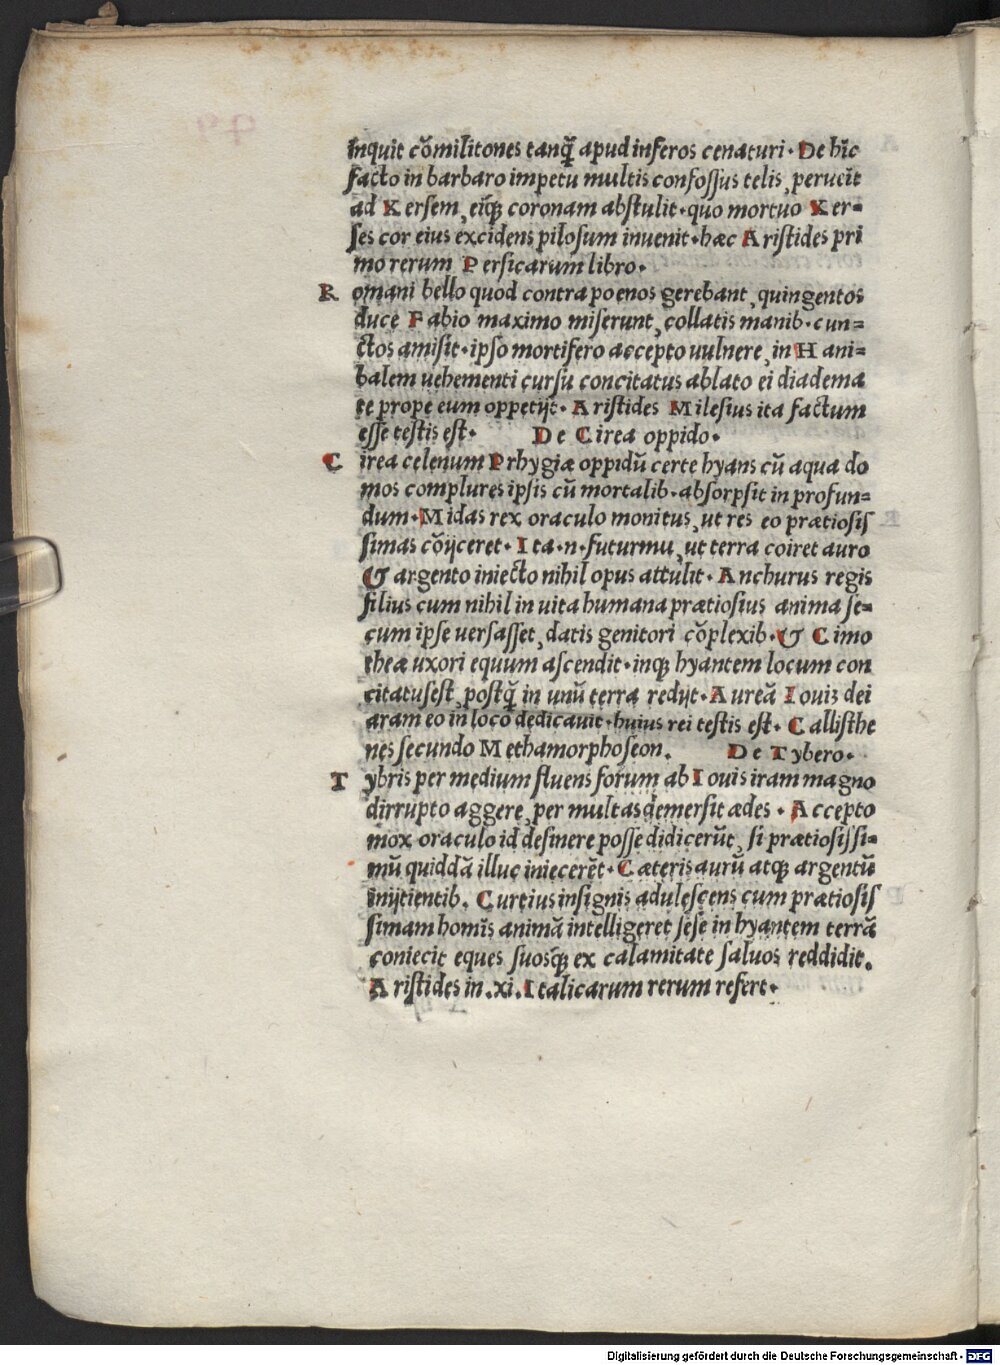 inquit cõmilitones tanq̃ apud inferos cenaturi. De hĩc
facto in barbaro impetu multis confossus telis, peruẽit
ad Xersem, eiqꝫ coronam abstulit. quo mortuo Xer=
ses cor eius excidens pilosum inuenit. hæc Aristides pri
mo rerum Persicarum libro.
Romani bello quod contra poenos gerebant, quingentos
duce Fabio maximo miserunt, collatis manib. cun=
ctos amisit. ipso mortifero accepto uulnere, in Hani=
balem uehementi cursu concitatus ablato ei diadema
te prope eum oppetijt. Aristides Milesius ita factum
esse testis est. De Cirea oppido.
Cirea celenum Prhygiæ oppidũ certe hyans cũ aqua do
mos complures ipsis cũ mortalib. absorpsit in profun=
dum. Midas rex oraculo monitus, ut res eo prætiosis
simas cõijceret. Ita. n. futurmu, ut terra coiret auro
& argento iniecto nihil opus attulit. Anchurus regis
filius cum nihil in uita humana prætiosius anima se=
cum ipse uersasset, datis genitori cõplexib. & Cimo
theæ uxori equum ascendit. inqꝫ hyantem locum con
citatusest, postq̃ in unũ terra redijt. Aureã Iouiz dei
aram eo in loco dedicauit. huius rei testis est. Callisthe
nes secundo Methamorphoseon. De Tybero.
Tybris per medium fluens forum ab Iouis iram magno
dirrupto aggere, per multas demersit ædes. Accepto
mox oraculo id desinere posse didicerũt, si prætiosissi=
mũ quiddã illuc iniecerẽt. Cæteris aurũ atqꝫ argentũ
inijtientib. Curtius insignis adulescens cum prætiosis
simam homĩs animã intelligeret sese in hyantem terrã
coniecit eques suosqꝫ ex calamitate saluos reddidit.
Aristides in .xi. Italicarum rerum refert.
Digitalisierung gefördert durch die Deutsche Forschungsgemeinschaft - DFG